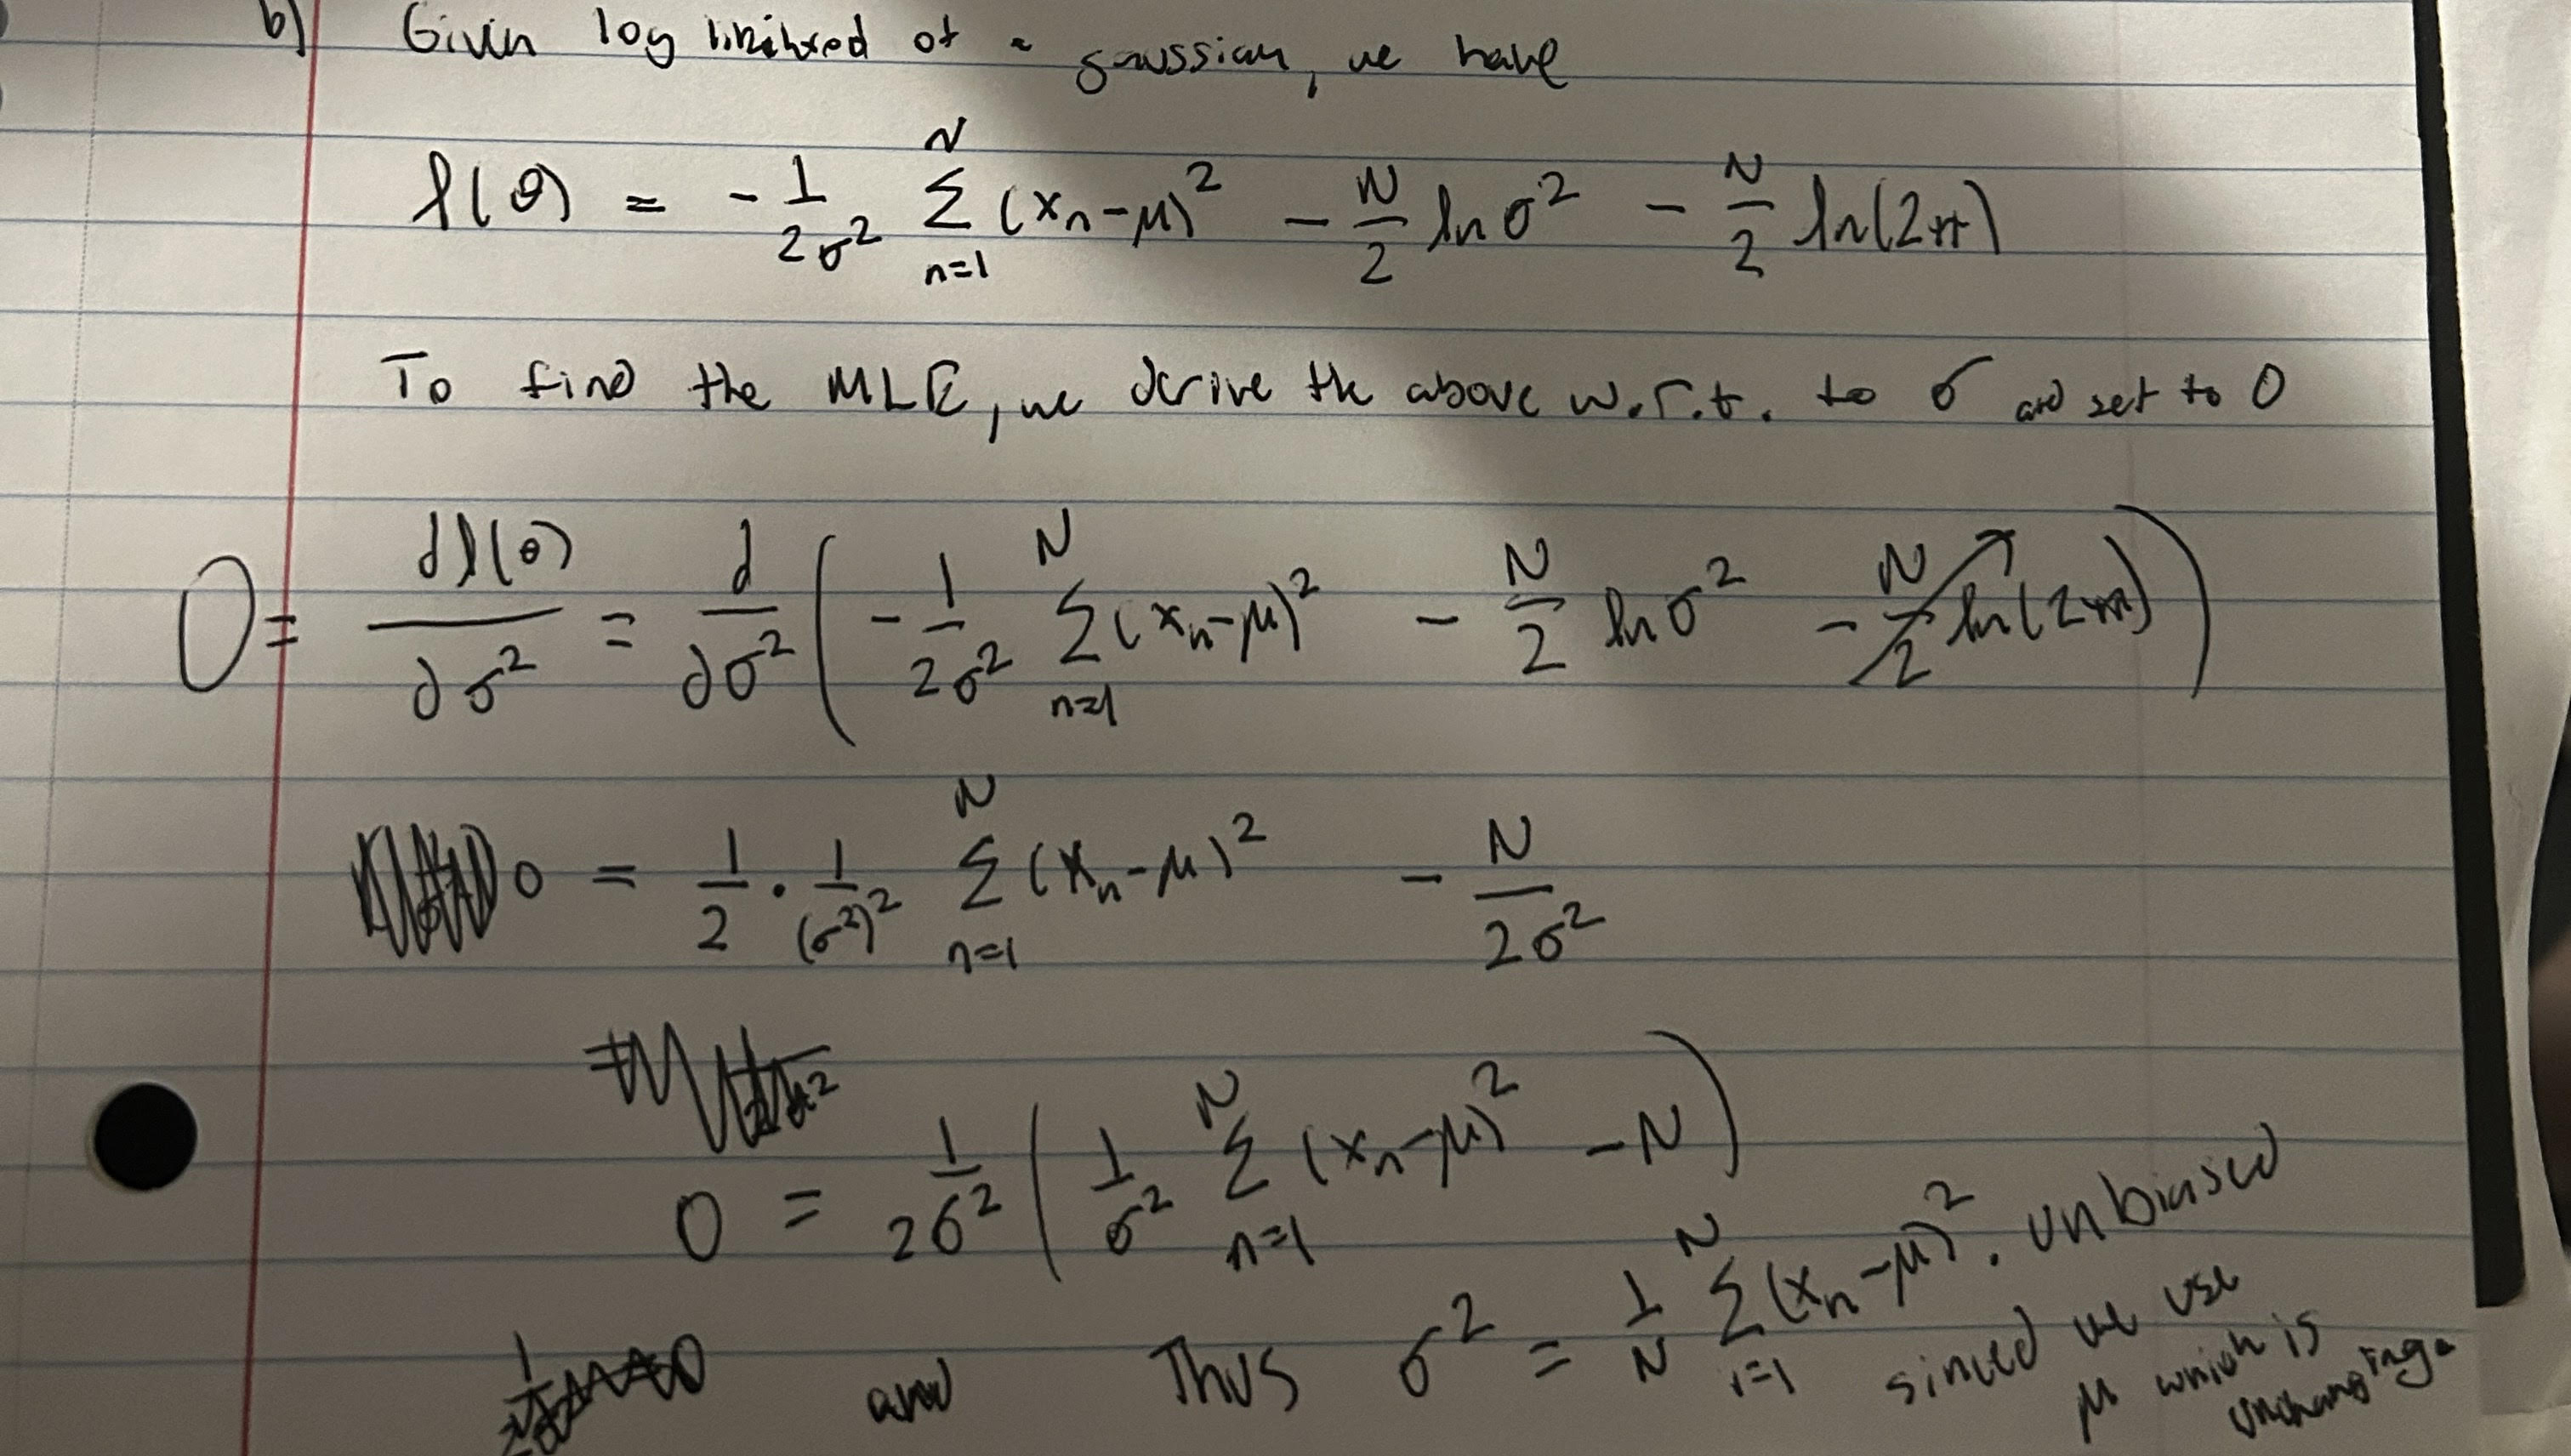 b) Given log likelihood of a gaussian, we have
l(θ) = - 1/(2σ²) Σ_{n=1}^{N} (x_n - μ)² - N/2 ln σ² - N/2 ln(2π)
To find the MLE, we derive the above w.r.t. to σ and set to 0
0 = dl(θ)/dσ² = d/dσ² ( - 1/(2σ²) Σ_{n=1}^{N} (x_n - μ)² - N/2 ln σ² - N/2 ln(2π) )
0 = 1/2 · 1/(σ²)² Σ_{n=1}^{N} (x_n - μ)² - N/(2σ²)
0 = 1/(2σ²) ( 1/σ² Σ_{n=1}^{N} (x_n - μ)² - N )
and Thus σ² = 1/N Σ_{i=1}^{N} (x_n - μ)². unbiased
since we use
μ which is
unchanging.